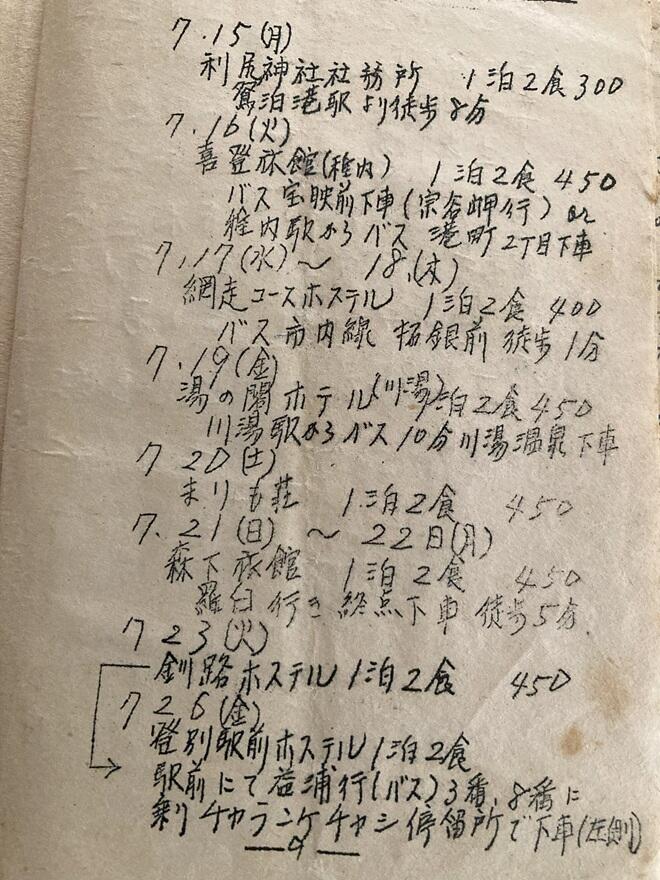 7.15(月)
利尻神社社務所 1泊2食300
鴛泊港駅より徒歩8分
7.16(火)
喜登旅館(稚内) 1泊2食 450
バス宝映前下車(宗谷岬行) or
稚内駅からバス 港町2丁目下車
7.17(水)～ 18.(木)
網走ユースホステル 1泊2食 400
バス市内線 拓銀前 徒歩1分
7.19(金)
湯の閣ホテル(川湯)1泊2食450
川湯駅からバス10分川湯温泉下車
7 20(土)
まりも荘 1泊2食 450
7.21(日) ～ 22日(月)
森下旅館 1泊2食 450
羅臼行き終点下車 徒歩5分
7 23(火)
釧路ホステル1泊2食 450
7 26(金)
登別駅前ホステル1泊2食
駅前にて益浦行(バス)3番、8番に
乗りチャランケチャシ停留所で下車(左側)